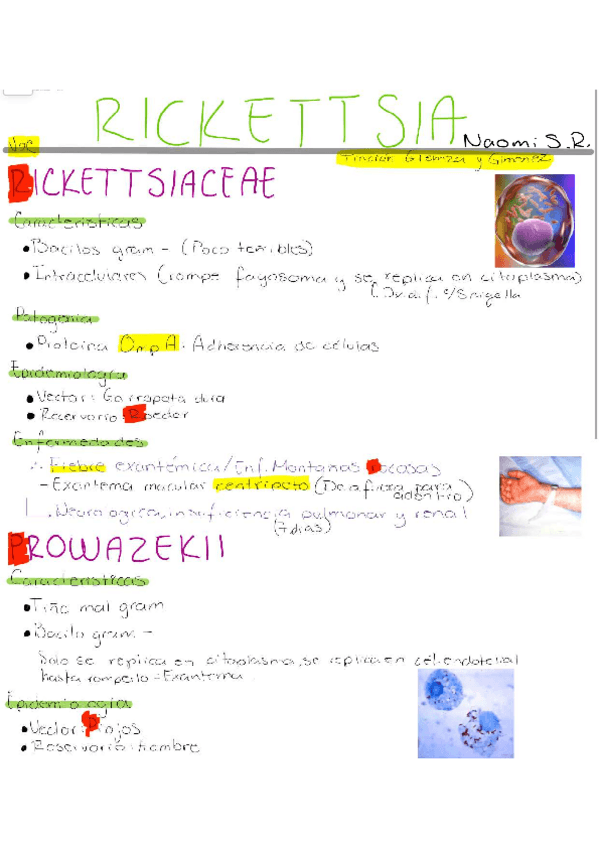 RICKETTSIA
Naomi S.R.
Tinción Giemsa y Gimenez
RICKETTSIACEAE
Características
•Bacilos gram - (Poco terribles)
•Intracelulares (rompe fagosoma y se replica en citoplasma)
c/Shigella
Patogenia
•Proteina OmpA. Adherencia de células
Epidemiología
•Vector: Garrapata dura
•Reservorio: Roedor
Enfermedades
∴ Fiebre exantémica/Enf. Montañas rocosas
-Exantema macular centripeto (De afuera para adentro)
Neurologica, insuficiencia pulmonar y renal
(7 dias)
PROWAZEKII
Características
•Tiñe mal gram
•Bacilo gram -
Solo se replica en citoplasma, se replica en cél. endotelial
hasta romperlo = Exantema
Epidemiologia
•Vector: Piojos
•Reservorio: hombre